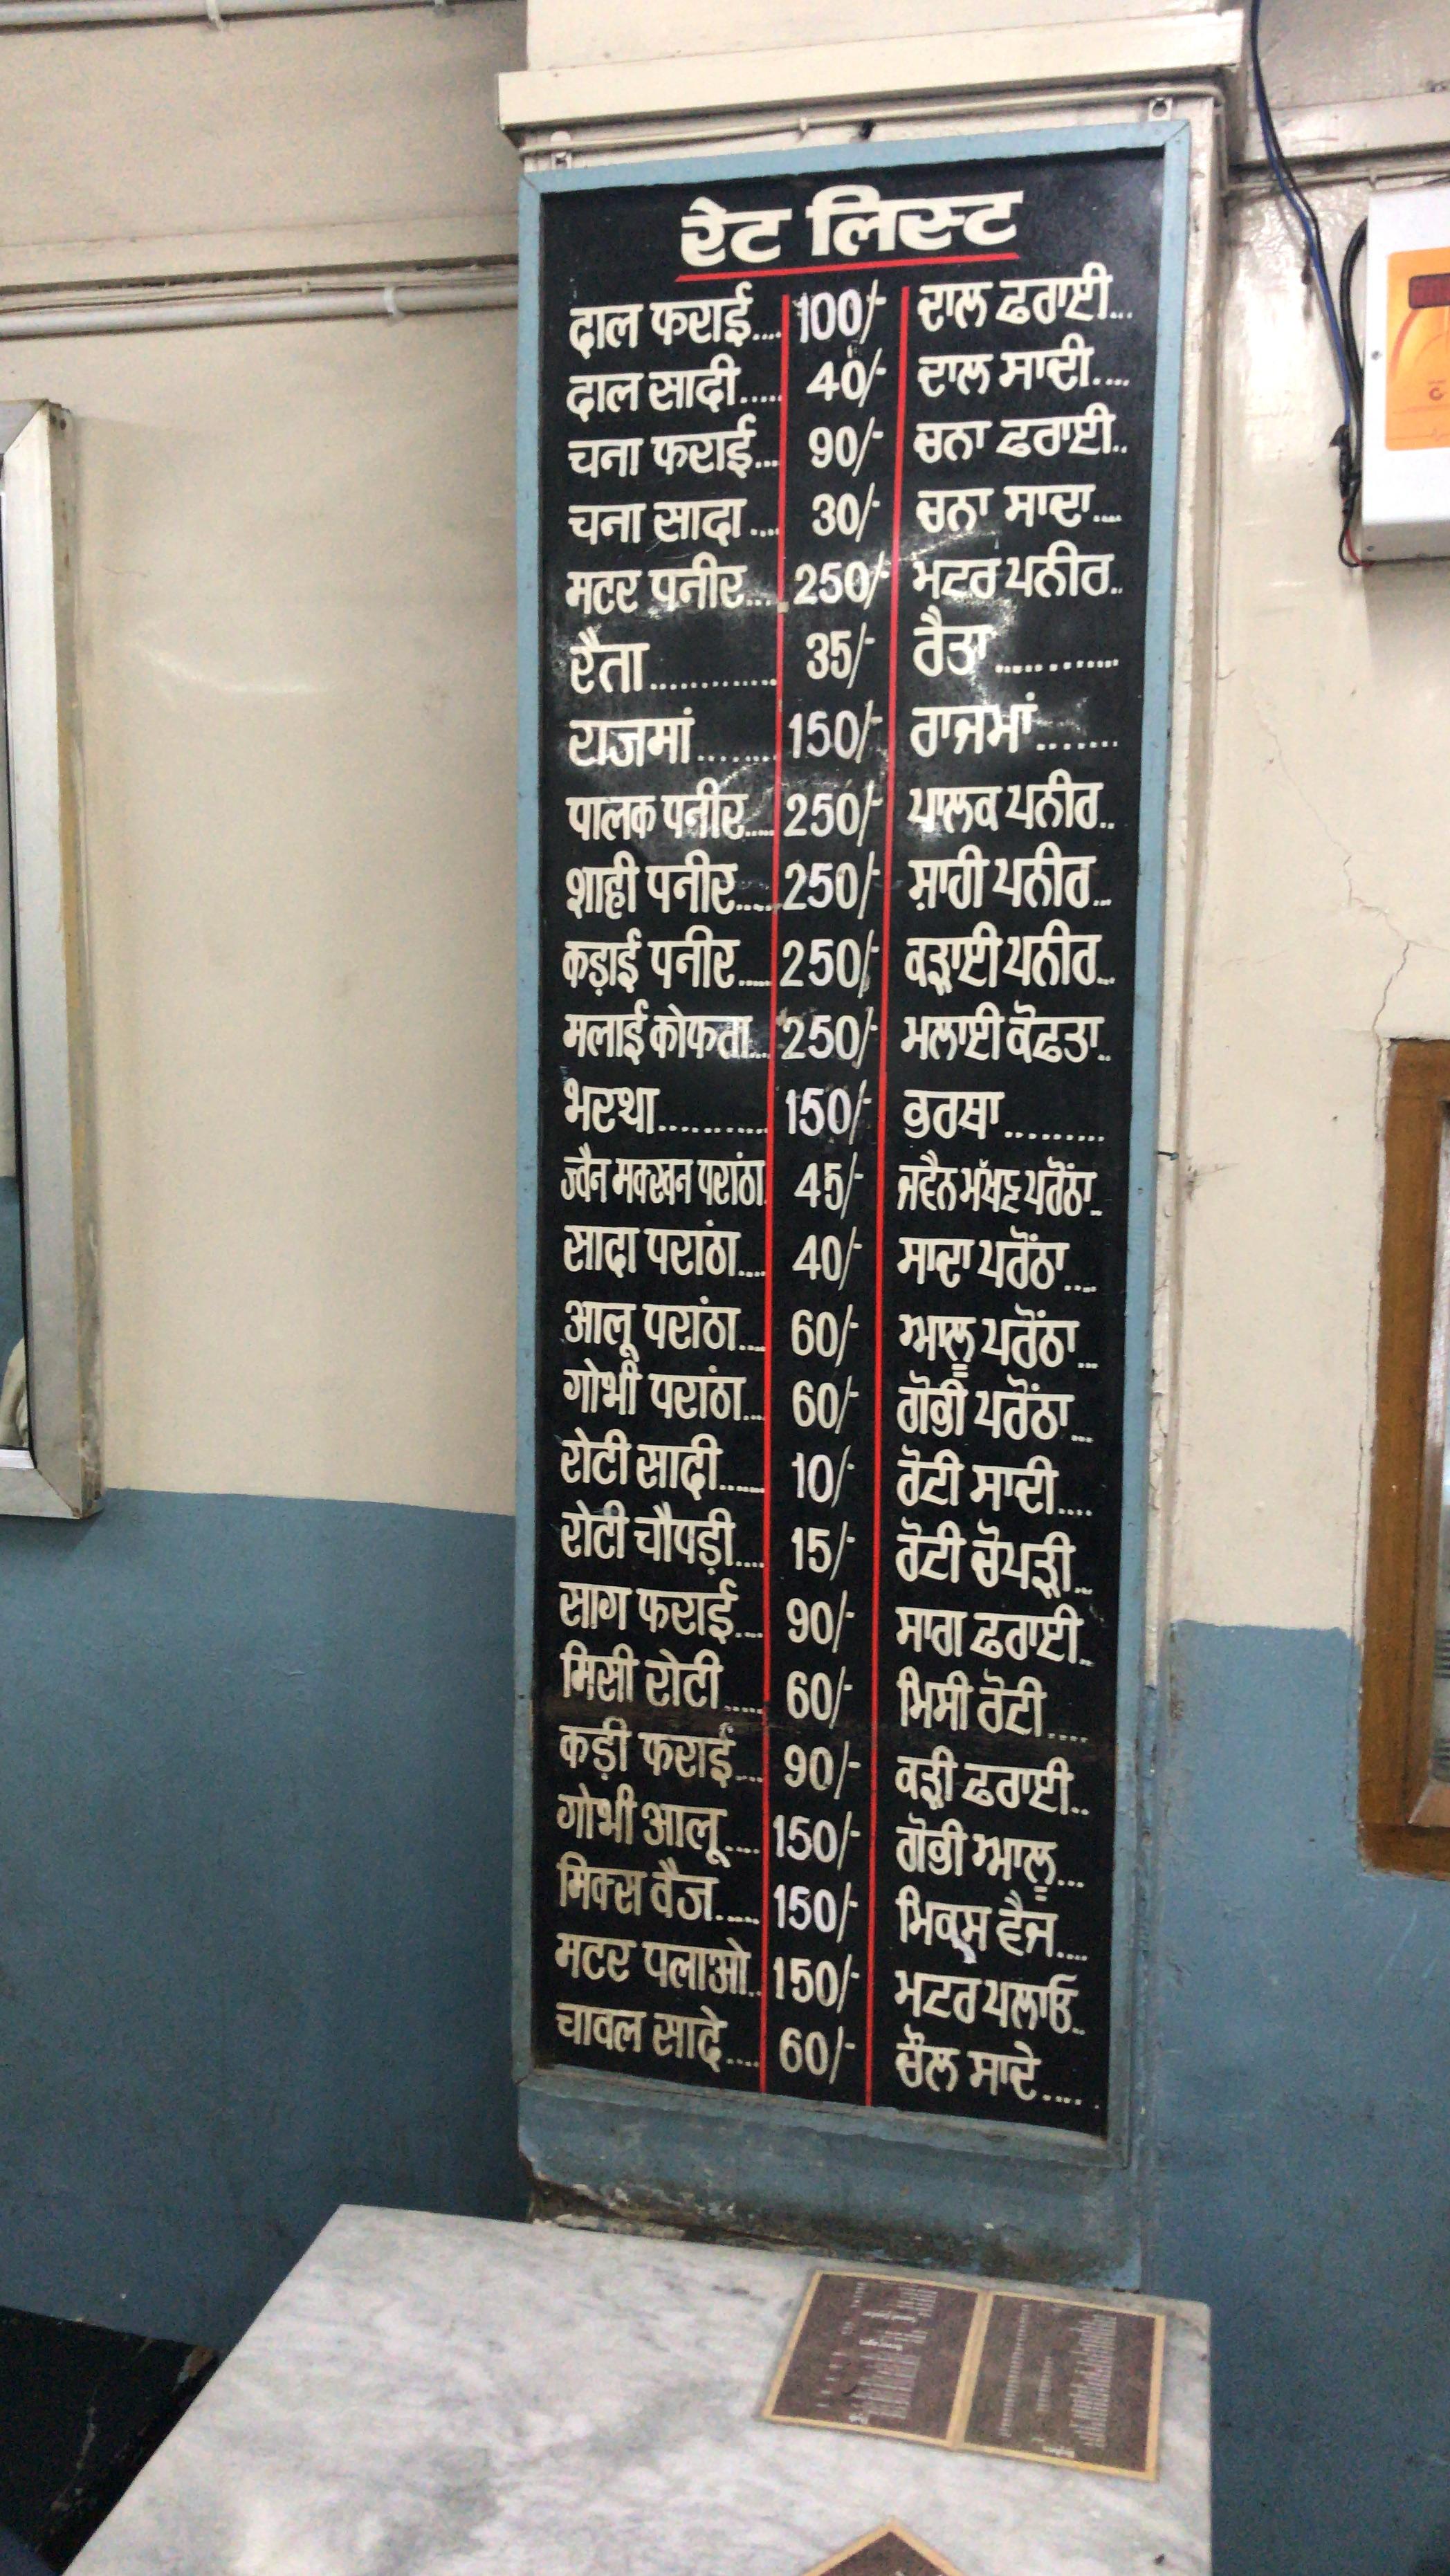 रेट लिस्ट
दाल फराई.... 100/- ਦਾਲ ਫਰਾਈ...
दाल सादी..... 40/- ਦਾਲ ਸਾਦੀ....
चना फराई... 90/- ਚਨਾ ਫਰਾਈ..
चना सादा.... 30/- ਚਨਾ ਸਾਦਾ....
मटर पनीर... 250/- ਮਟਰ ਪਨੀਰ..
रैता............ 35/- ਰੈਤਾ...........
राजमां....... 150/- ਰਾਜਮਾਂ.......
पालक पनीर.... 250/- ਪਾਲਕ ਪਨੀਰ..
शाही पनीर..... 250/- ਸ਼ਾਹੀ ਪਨੀਰ...
कड़ाई पनीर..... 250/- ਕੜਾਈ ਪਨੀਰ...
मलाई कोफता... 250/- ਮਲਾਈ ਕੋਫਤਾ..
भरथा.......... 150/- ਭਰਥਾ.........
ज्वैन मक्खन परांठा. 45/- ਜਵੈਨ ਮੱਖਣ ਪਰੌਂਠਾ..
सादा परांठा.... 40/- ਸਾਦਾ ਪਰੌਂਠਾ....
आलू परांठा.... 60/- ਆਲੂ ਪਰੌਂਠਾ...
गोभी परांठा... 60/- ਗੋਭੀ ਪਰੌਂਠਾ...
रोटी सादी...... 10/- ਰੋਟੀ ਸਾਦੀ....
रोटी चौपड़ी.... 15/- ਰੋਟੀ ਚੋਪੜੀ...
साग फराई.... 90/- ਸਾਗ ਫਰਾਈ..
मिसी रोटी..... 60/- ਮਿਸੀ ਰੋਟੀ....
कड़ी फराई.... 90/- ਕੜੀ ਫਰਾਈ..
गोभी आलू.... 150/- ਗੋਭੀ ਆਲੂ...
मिक्स वैज..... 150/- ਮਿਕਸ ਵੈਜ....
मटर पलाओ.. 150/- ਮਟਰ ਪਲਾਓ..
चावल सादे.... 60/- ਚੌਲ ਸਾਦੇ.....